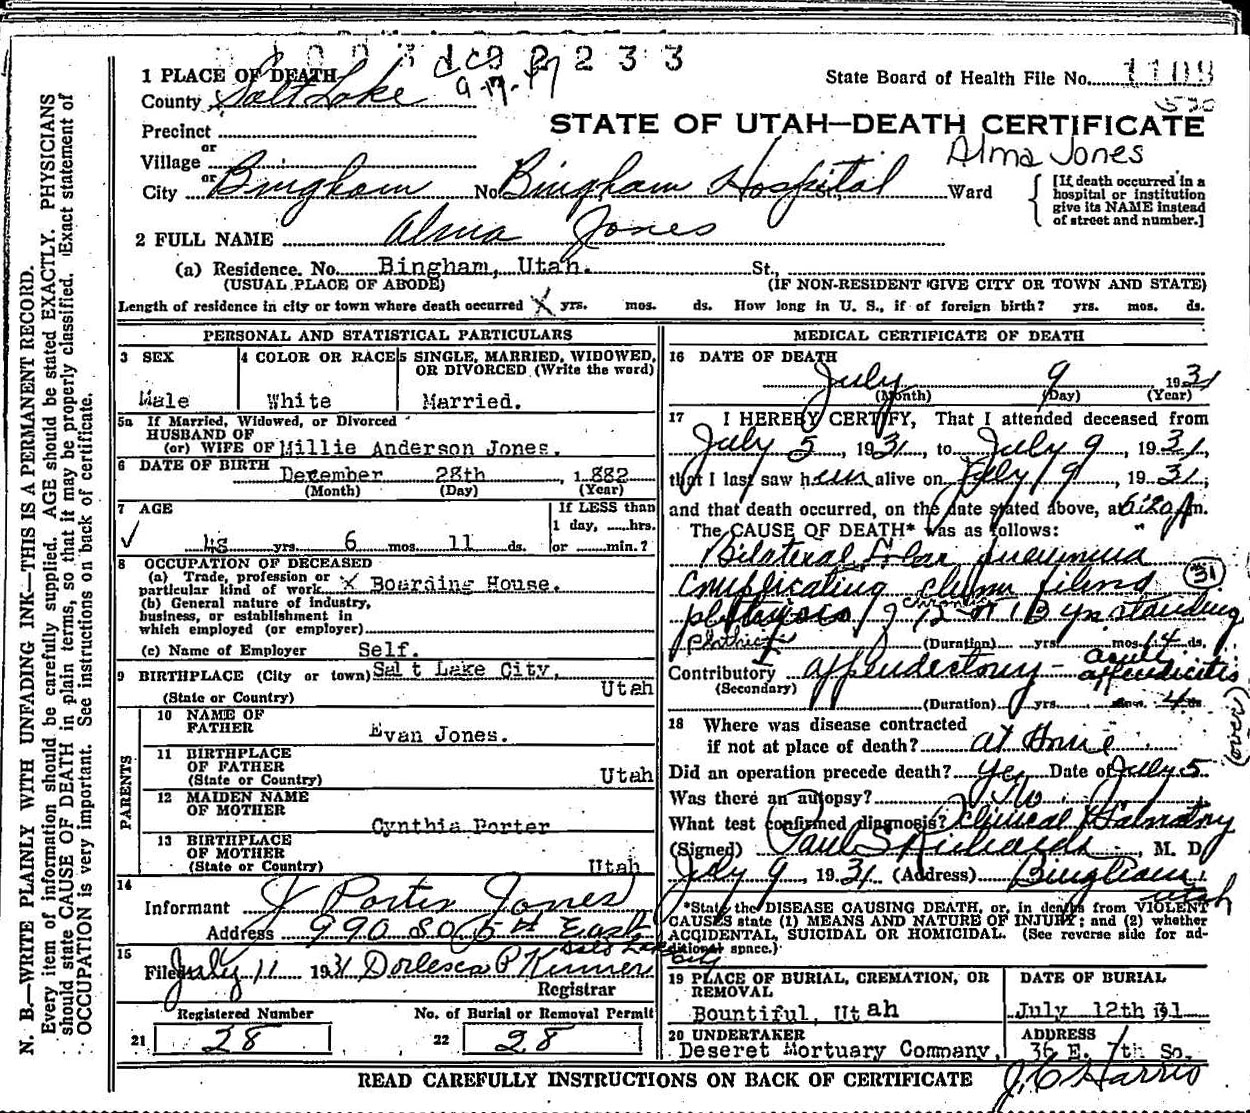 1 PLACE OF DEATH
County Salt Lake
State Board of Health File No. 1109
Precinct
or
Village
or
City Bingham No. Bingham Hospital St., Ward
STATE OF UTAH—DEATH CERTIFICATE
Alma Jones
[If death occurred in a hospital or institution give its NAME instead of street and number.]
2 FULL NAME Alma Jones
(a) Residence. No. Bingham, Utah. St.,
(USUAL PLACE OF ABODE) (IF NON-RESIDENT GIVE CITY OR TOWN AND STATE)
Length of residence in city or town where death occurred X yrs. mos. ds. How long in U. S., if of foreign birth? yrs. mos. ds.
N. B.—WRITE PLAINLY WITH UNFADING INK—THIS IS A PERMANENT RECORD.
Every item of information should be carefully supplied. AGE should be stated EXACTLY. PHYSICIANS
should state CAUSE OF DEATH in plain terms, so that it may be properly classified. Exact statement of
OCCUPATION is very important. See instructions on back of certificate.
PERSONAL AND STATISTICAL PARTICULARS
3 SEX
Male
4 COLOR OR RACE
White
5 SINGLE, MARRIED, WIDOWED,
OR DIVORCED (Write the word)
Married.
5a If Married, Widowed, or Divorced
HUSBAND OF
(or) WIFE OF Millie Anderson Jones.
6 DATE OF BIRTH December 28th, 1882
(Month) (Day) (Year)
7 AGE
48 yrs. 6 mos. 11 ds.
If LESS than
1 day, hrs.
or min.?
8 OCCUPATION OF DECEASED
(a) Trade, profession or
particular kind of work X Boarding House.
(b) General nature of industry,
business, or establishment in
which employed (or employer)
(c) Name of Employer Self.
9 BIRTHPLACE (City or town) Salt Lake City,
(State or Country) Utah
PARENTS
10 NAME OF
FATHER Evan Jones.
11 BIRTHPLACE
OF FATHER
(State or Country) Utah
12 MAIDEN NAME
OF MOTHER
Cynthia Porter
13 BIRTHPLACE
OF MOTHER
(State or Country) Utah
14
Informant J Porter Jones
Address 990 So 5th East
Salt Lake City
15
Filed July 11 1931 P Kinner
Registrar
Registered Number
21 28
No. of Burial or Removal Permit
22 28
MEDICAL CERTIFICATE OF DEATH
16 DATE OF DEATH
July 9 1931
(Month) (Day) (Year)
17 I HEREBY CERTIFY, That I attended deceased from
July 5, 1931, to July 9, 1931,
that I last saw him alive on July 9, 1931;
and that death occurred, on the date stated above, at 6:20 m.
The CAUSE OF DEATH* was as follows:
Bilateral Lobar pneumonia
complicating chronic
phthisis standing
31
(Duration) yrs. mos. 4 ds.
Contributory appendectomy - acute appendicitis
(Secondary)
(Duration) yrs. mos. 4 ds.
(over)
18 Where was disease contracted
if not at place of death? at Home
Did an operation precede death? Yes Date of July 5
Was there an autopsy? No
What test confirmed diagnosis? Clinical
(Signed) Paul S Richards, M. D.
July 9, 1931 (Address) Bingham Utah
*State the DISEASE CAUSING DEATH, or, in deaths from VIOLENT
CAUSES state (1) MEANS AND NATURE OF INJURY; and (2) whether
ACCIDENTAL, SUICIDAL OR HOMICIDAL. (See reverse side for ad-
ditional space.)
19 PLACE OF BURIAL, CREMATION, OR
REMOVAL
Bountiful, Utah
DATE OF BURIAL
July 12th 1931
20 UNDERTAKER
Deseret Mortuary Company,
ADDRESS
36 E. 7th So.
J. C Harris
READ CAREFULLY INSTRUCTIONS ON BACK OF CERTIFICATE